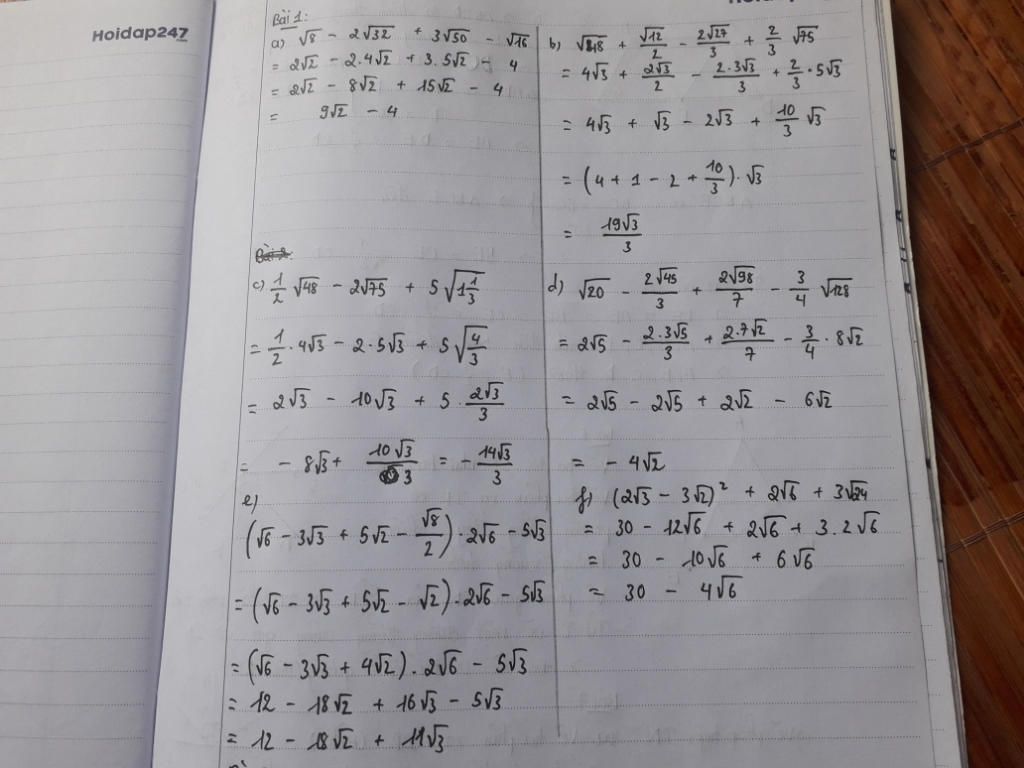 Hoidap247
Hoidap
Bài 1:
a) √8 - 2√32 + 3√50 - √16
= 2√2 - 2.4√2 + 3.5√2 - 4
= 2√2 - 8√2 + 15√2 - 4
= 9√2 - 4
b) √48 + √12/2 - 2√27/3 + 2/3 √75
= 4√3 + 2√3/2 - 2.3√3/3 + 2/3 . 5√3
= 4√3 + √3 - 2√3 + 10/3 √3
= (4 + 1 - 2 + 10/3) . √3
= 19√3/3
c) 1/2 √48 - 2√75 + 5√(1 1/3)
= 1/2 . 4√3 - 2.5√3 + 5√(4/3)
= 2√3 - 10√3 + 5 . 2√3/3
= - 8√3 + 10√3/3 = - 14√3/3
d) √20 - 2√45/3 + 2√98/7 - 3/4 √128
= 2√5 - 2.3√5/3 + 2.7√2/7 - 3/4 . 8√2
= 2√5 - 2√5 + 2√2 - 6√2
= - 4√2
e)
(√6 - 3√3 + 5√2 - √8/2) . 2√6 - 5√3
= (√6 - 3√3 + 5√2 - √2) . 2√6 - 5√3
= (√6 - 3√3 + 4√2) . 2√6 - 5√3
= 12 - 18√2 + 16√3 - 5√3
= 12 - 18√2 + 11√3
f) (2√3 - 3√2)² + 2√6 + 3√24
= 30 - 12√6 + 2√6 + 3.2√6
= 30 - 10√6 + 6√6
= 30 - 4√6